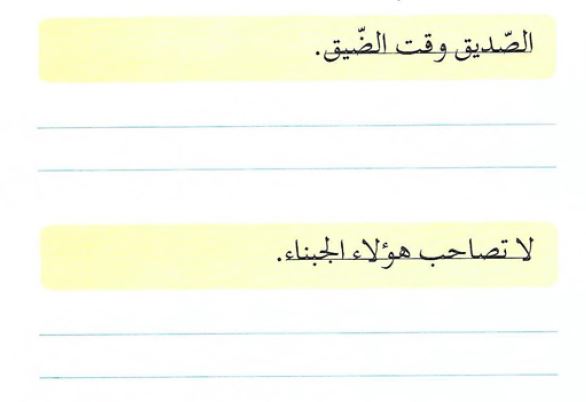 الصّديق وقت الضّيق.
لا تصاحب هؤلاء الجبناء.